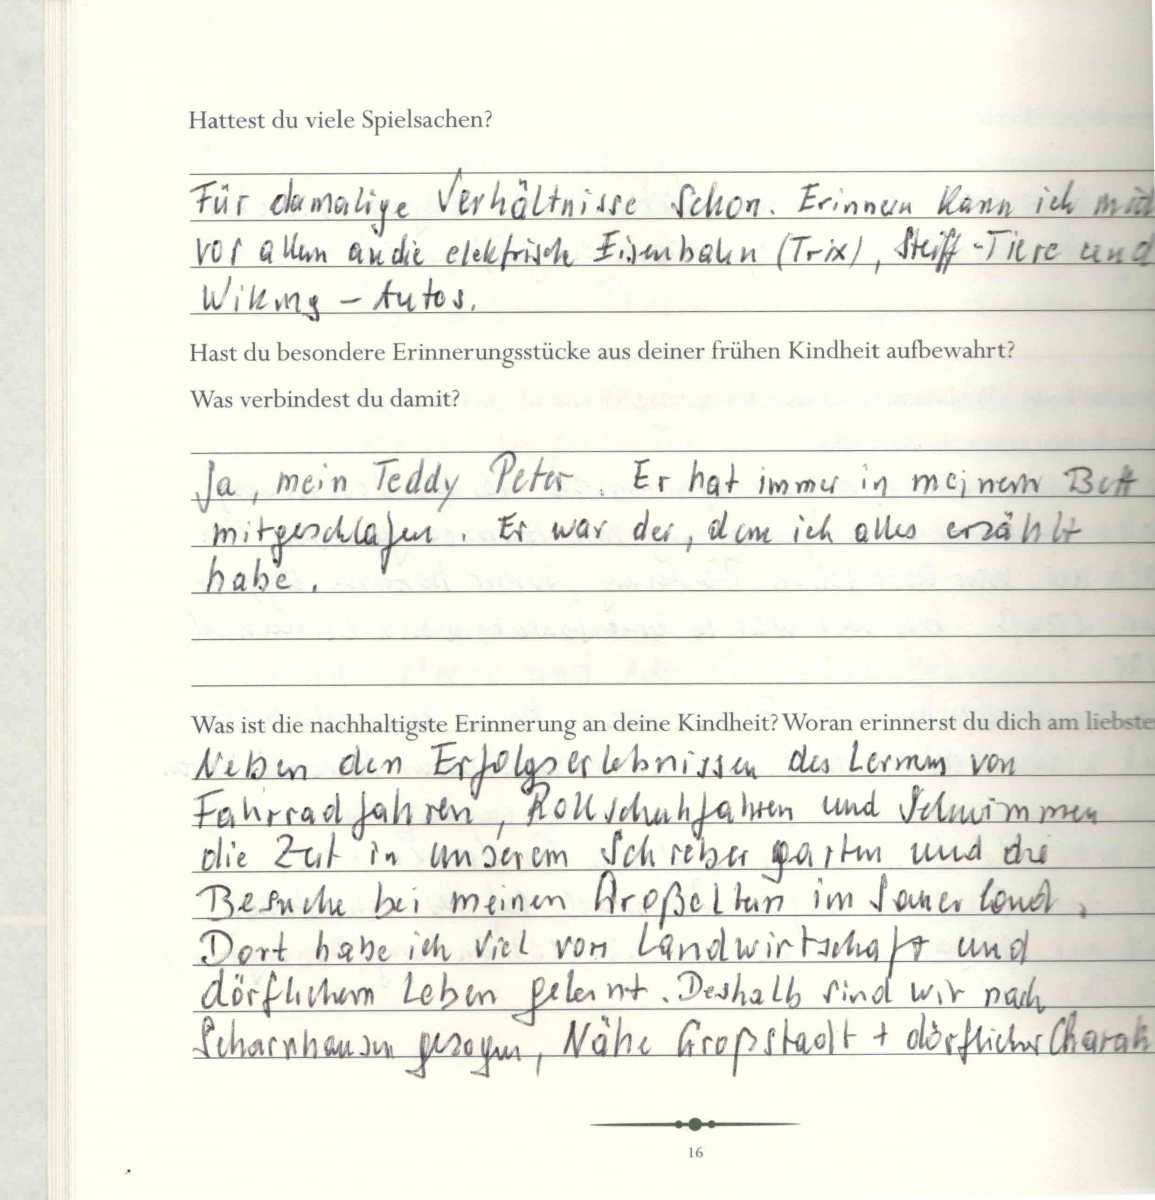 Hattest du viele Spielsachen?
Für damalige Verhältnisse schon. Erinnern kann ich mich
vor allem an die elektrische Eisenbahn (Trix), Steiff-Tiere und
Wiking - Autos.
Hast du besondere Erinnerungsstücke aus deiner frühen Kindheit aufbewahrt?
Was verbindest du damit?
Ja, mein Teddy Peter. Er hat immer in meinem Bett
mitgeschlafen. Er war der, dem ich alles erzählt
habe.
Was ist die nachhaltigste Erinnerung an deine Kindheit? Woran erinnerst du dich am liebste
Neben den Erfolgserlebnissen des Lernens von
Fahrradfahren, Rollschuhfahren und Schwimmen
die Zeit in unserem Schrebergarten und die
Besuche bei meinen Großeltern im Sauerland.
Dort habe ich viel von Landwirtschaft und
dörflichem Leben gelernt. Deshalb sind wir nach
Scharnhausen gezogen, Nähe Großstadt + dörflicher Charak
16